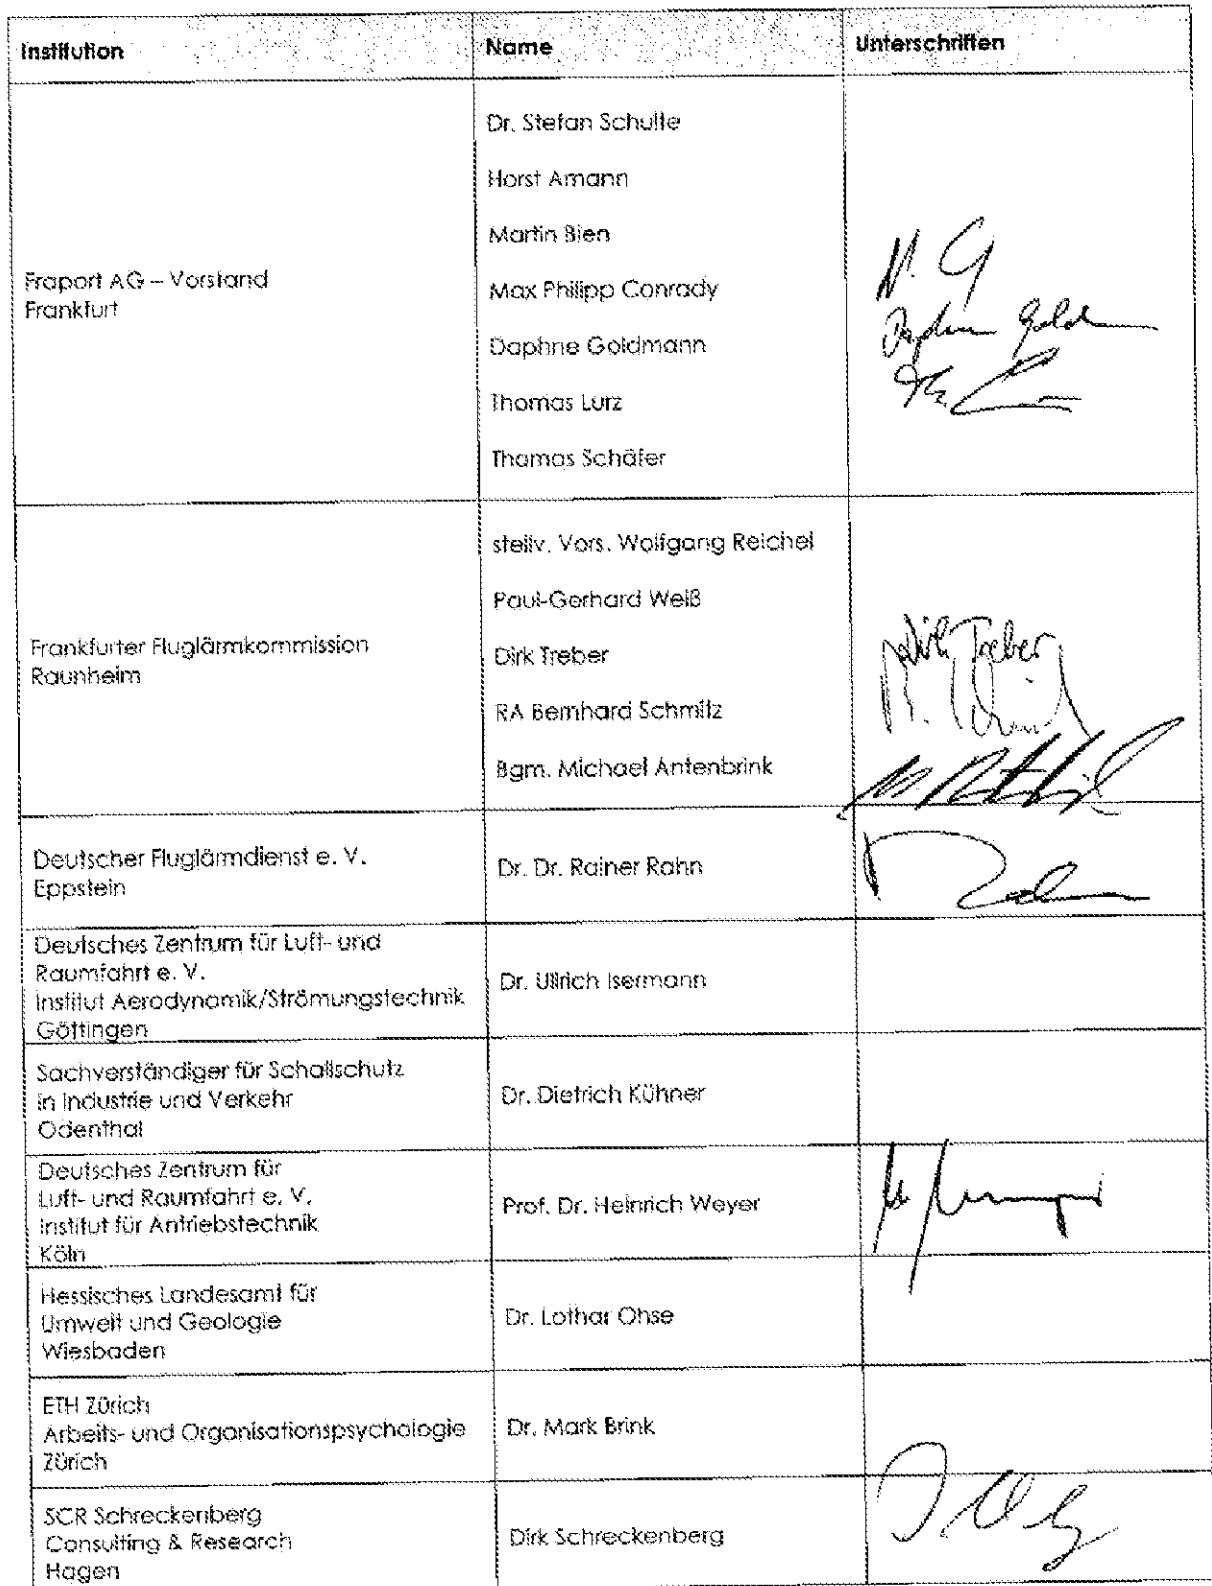 Institution Name Unterschriften
Fraport AG – Vorstand
Frankfurt
Dr. Stefan Schulte
Horst Amann
Martin Bien
Max Philipp Conrady
Daphne Goldmann
Thomas Lurz
Thomas Schäfer
Frankfurter Fluglärmkommission
Raunheim
stellv. Vors. Wolfgang Reichel
Paul-Gerhard Weiß
Dirk Treber
RA Bernhard Schmitz
Bgm. Michael Antenbrink
Dirk Treber
Deutscher Fluglärmdienst e. V.
Eppstein
Dr. Dr. Rainer Rahn
Deutsches Zentrum für Luft- und
Raumfahrt e. V.
Institut Aerodynamik/Strömungstechnik
Göttingen
Dr. Ullrich Isermann
Sachverständiger für Schallschutz
in Industrie und Verkehr
Odenthal
Dr. Dietrich Kühner
Deutsches Zentrum für
Luft- und Raumfahrt e. V.
Institut für Antriebstechnik
Köln
Prof. Dr. Heinrich Weyer
Hessisches Landesamt für
Umwelt und Geologie
Wiesbaden
Dr. Lothar Ohse
ETH Zürich
Arbeits- und Organisationspsychologie
Zürich
Dr. Mark Brink
SCR Schreckenberg
Consulting & Research
Hagen
Dirk Schreckenberg